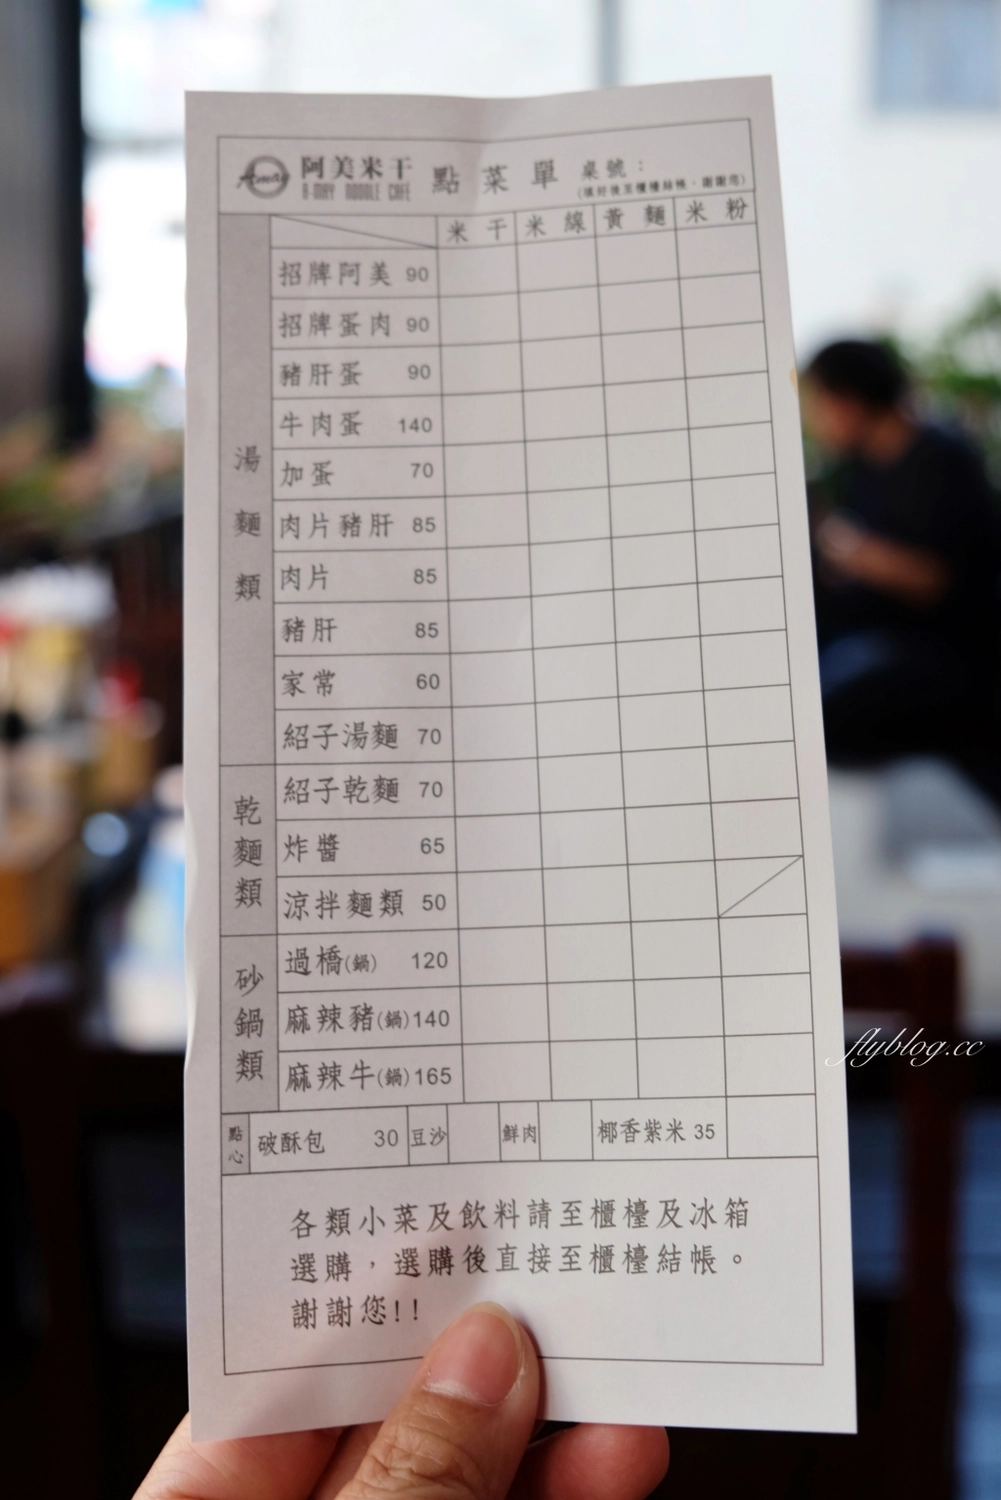 Amay 阿美米干 點菜單 桌號：
A-MAY NOODLE CAFE (填好後至櫃檯結帳，謝謝您)
米干 米線 黃麵 米粉
湯麵類
招牌阿美 90
招牌蛋肉 90
豬肝蛋 90
牛肉蛋 140
加蛋 70
肉片豬肝 85
肉片 85
豬肝 85
家常 60
紹子湯麵 70
乾麵類
紹子乾麵 70
炸醬 65
涼拌麵類 50
砂鍋類
過橋(鍋) 120
麻辣豬(鍋) 140
麻辣牛(鍋) 165
點心 破酥包 30 豆沙 鮮肉 椰香紫米 35
各類小菜及飲料請至櫃檯及冰箱
選購，選購後直接至櫃檯結帳。
謝謝您!!
flyblog.cc